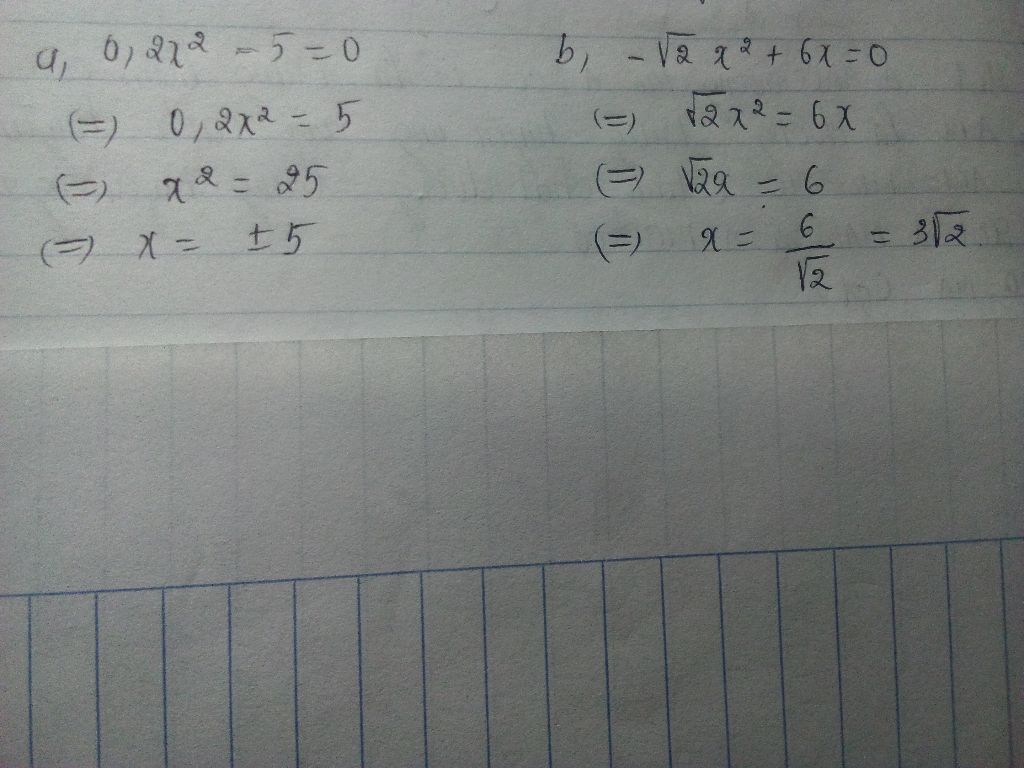 a, 0,2x² - 5 = 0
(=) 0,2x² = 5
(=) x² = 25
(=) x = ±5
b, -√2 x² + 6x = 0
(=) √2x² = 6x
(=) √2x = 6
(=) x = 6/√2 = 3√2